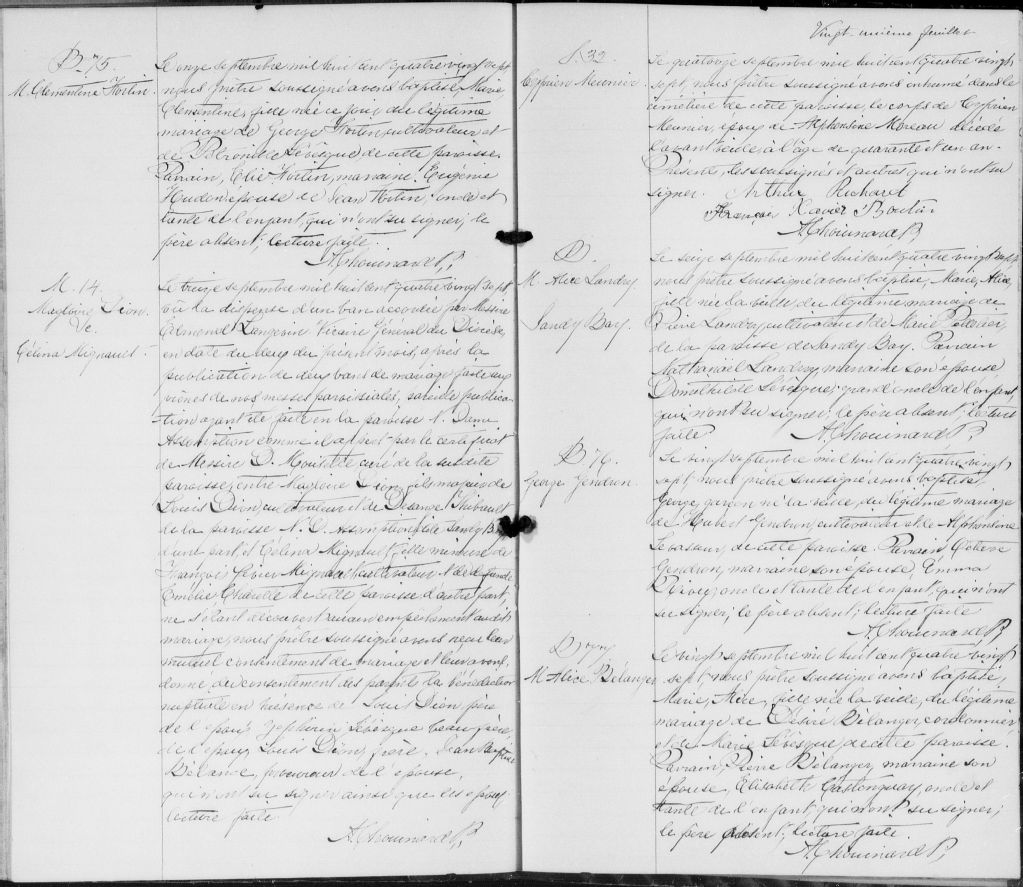 B. 75.
M. Clementine Fortin.
Le onze septembre mil huit cent quatre vingt sept
nous prêtre soussigné avons baptisé Marie
Clementine, fille née ce jour du légitime
mariage de George Fortin cultivateur et
de Pétronille Lévesque de cette paroisse.
Parrain, Elie Fortin, marraine Eugenie
Hudon épouse de Jean Fortin; oncle et
tante de l'enfant, qui n'ont su signer; le
père absent; lecture faite.
A. Chouinard P,
M. 14.
Magloire Dion.
&.
Célina Mignault.
Le treize septembre mil huit cent quatre vingt sept
vu la dispense d'un ban accordée par Messire
Edmond Langevin Vicaire Général du Diocèse,
en date du du présent mois, après la
publication de deux bans de mariage faite aux
prônes de nos messes paroissiales, pareille publica-
tion ayant été faite en la paroisse N. Dame
Assomption comme il appert par le certificat
de Messire D. curé de la susdite
paroisse, entre Magloire Dion, fils majeur de
Louis Dion cultivateur et de Désange Thibault
de la paroisse N. D. Assomption de Sandy Bay
d'une part, et Célina Mignault, fille mineure de
François Xavier Mignault cultivateur & de defunte
Emélie de cette paroisse d'autre part;
ne s'étant découvert aucun empêchement audit
mariage, nous prêtre soussigné avons reçu leur
mutuel consentement de mariage et leur avons
donné du consentement des parents la bénédiction
nuptiale en présence de Louis Dion père
de l'époux, Zephirin Lévesque beau frère
de l'époux, Louis Dion, frère. Jean Baptiste
Bélanger, procureur de l'épouse,
qui n'ont su signer ainsi que les époux
lecture faite.
A. Chouinard P,
Vingt-unième feuillet
S. 32.
Cyprien Meunier.
Le quatorze septembre mil huit cent quatre vingt
sept, nous prêtre soussigné avons inhumé dans le
cimetière de cette paroisse, le corps de Cyprien
Meunier, époux de Alphonsine Moreau décédé
l'avant veille, à l'âge de quarante et un an.
Présents, les soussignés et autres qui n'ont su
signer. Arthur Richard
François Xavier Boutin
A. Chouinard P,
B.
M. Alice Landry
Sandy Bay.
Le seize septembre mil huit cent quatre vingt sept
nous prêtre soussigné avons baptisé, Marie, Alice,
fille née la veille du légitime mariage de
Pierre Landry cultivateur & de Marie Pelletier,
de la paroisse de Sandy Bay. Parrain
Nathanaël Landry, marraine son épouse
Domithilde Lévesque; grand oncle de l'enfant,
qui n'ont su signer; le père absent, lecture
faite.
A. Chouinard P,
B 76.
George Gendron.
Le vingt septembre mil huit cent quatre vingt
sept nous prêtre soussigné avons baptisé
George, garçon né la veille, du légitime mariage
de Hubert Gendron cultivateur et de Alphonsine
Levasseur, de cette paroisse. Parrain Octave
Gendron, marraine son épouse Emma
oncle et tante de l'enfant, qui n'ont
su signer; le père absent; lecture faite
A. Chouinard P
B 77
M. Alice Bélanger
Le vingt septembre mil huit cent quatre vingt
sept nous prêtre soussigné avons baptisé,
Marie, Alice, fille née la veille, du légitime
mariage de Désiré Bélanger, cordonnier
et de Marie Lévesque de cette paroisse.
Parrain, Pierre Bélanger, marraine son
épouse, Elisabeth Gastonguay, oncle et
tante de l'enfant, qui n'ont su signer;
le père présent; lecture faite.
A. Chouinard P,